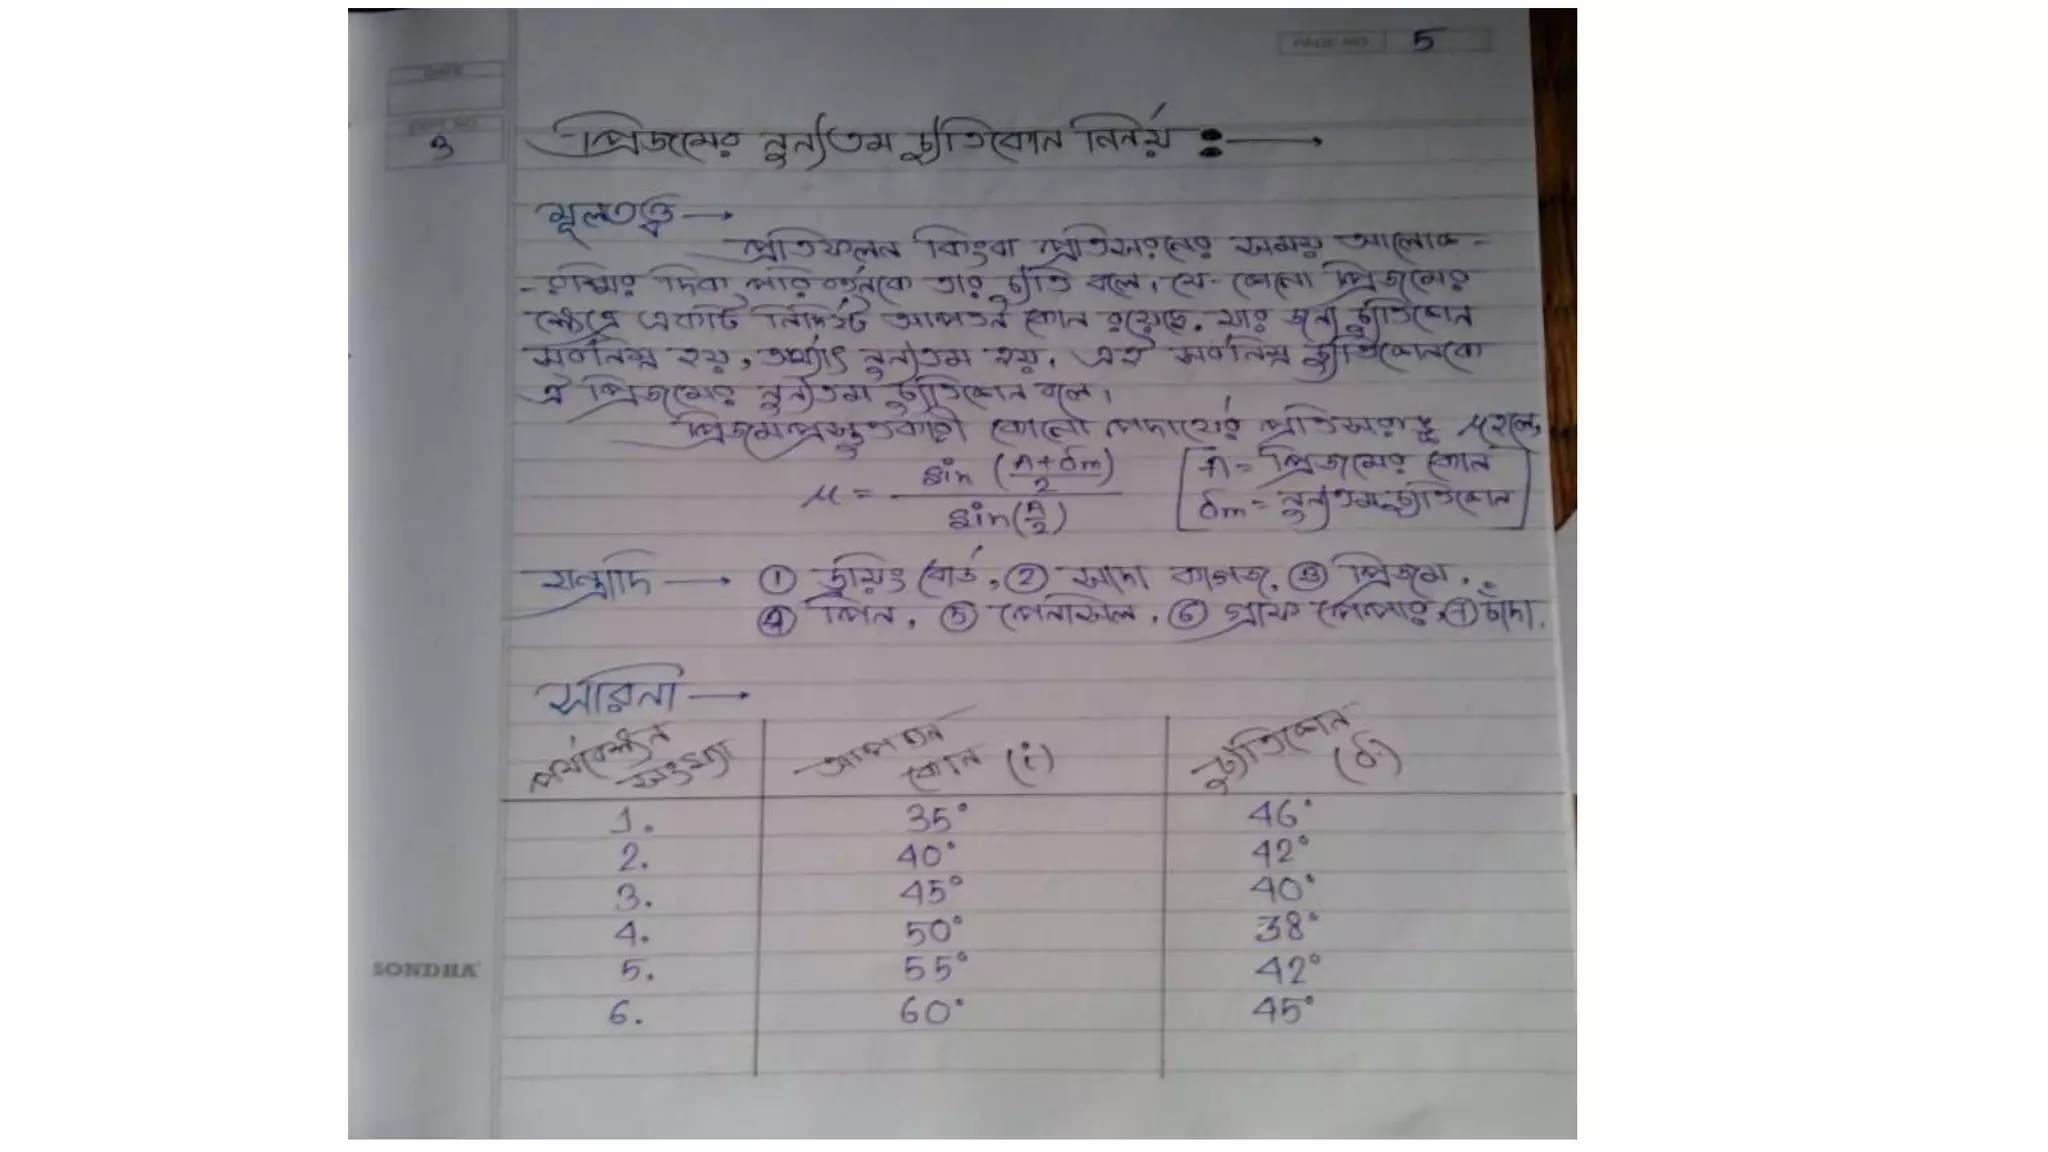 PAGE NO. 5
DATE
EXPT NO.
3
প্রিজমের নুন্যতম চ্যুতিকোন নির্নয় : →
মূলতত্ত্ব →
প্রতিফলন কিংবা প্রতিসরনের সময় আলোক-
-রশ্মির দিক পরিবর্তনকে তার চ্যুতি বলে। যে-কোনো প্রিজমের
ক্ষেত্রে একটি নির্দিষ্ট আপতন কোন রয়েছে. যার জন্য চ্যুতিকোন
সর্বনিম্ন হয়, অর্থ্যাৎ নুন্যতম হয়। এই সর্বনিম্ন চ্যুতিকোনকে
ঐ প্রিজমের নুন্যতম চ্যুতিকোন বলে।
প্রিজমপ্রস্তুতকারী কোনো পদার্থের প্রতিসরাঙ্ক μ হলে,
μ = sin (A+δm/2) / sin(A/2) [A = প্রিজমের কোন
δm = নুন্যতম চ্যুতিকোন]
যন্ত্রাদি → ① ড্রয়িং বোর্ড, ② সাদা কাগজ, ③ প্রিজম,
④ পিন, ⑤ পেনসিল, ⑥ গ্রাফ পেপার, ⑦ চাঁদা.
সারিনী →
পর্যবেক্ষন সংখ্যা আপতন কোন (i) চ্যুতিকোন (δ)
1. 35° 46°
2. 40° 42°
3. 45° 40°
4. 50° 38°
5. 55° 42°
6. 60° 45°
SONDHA